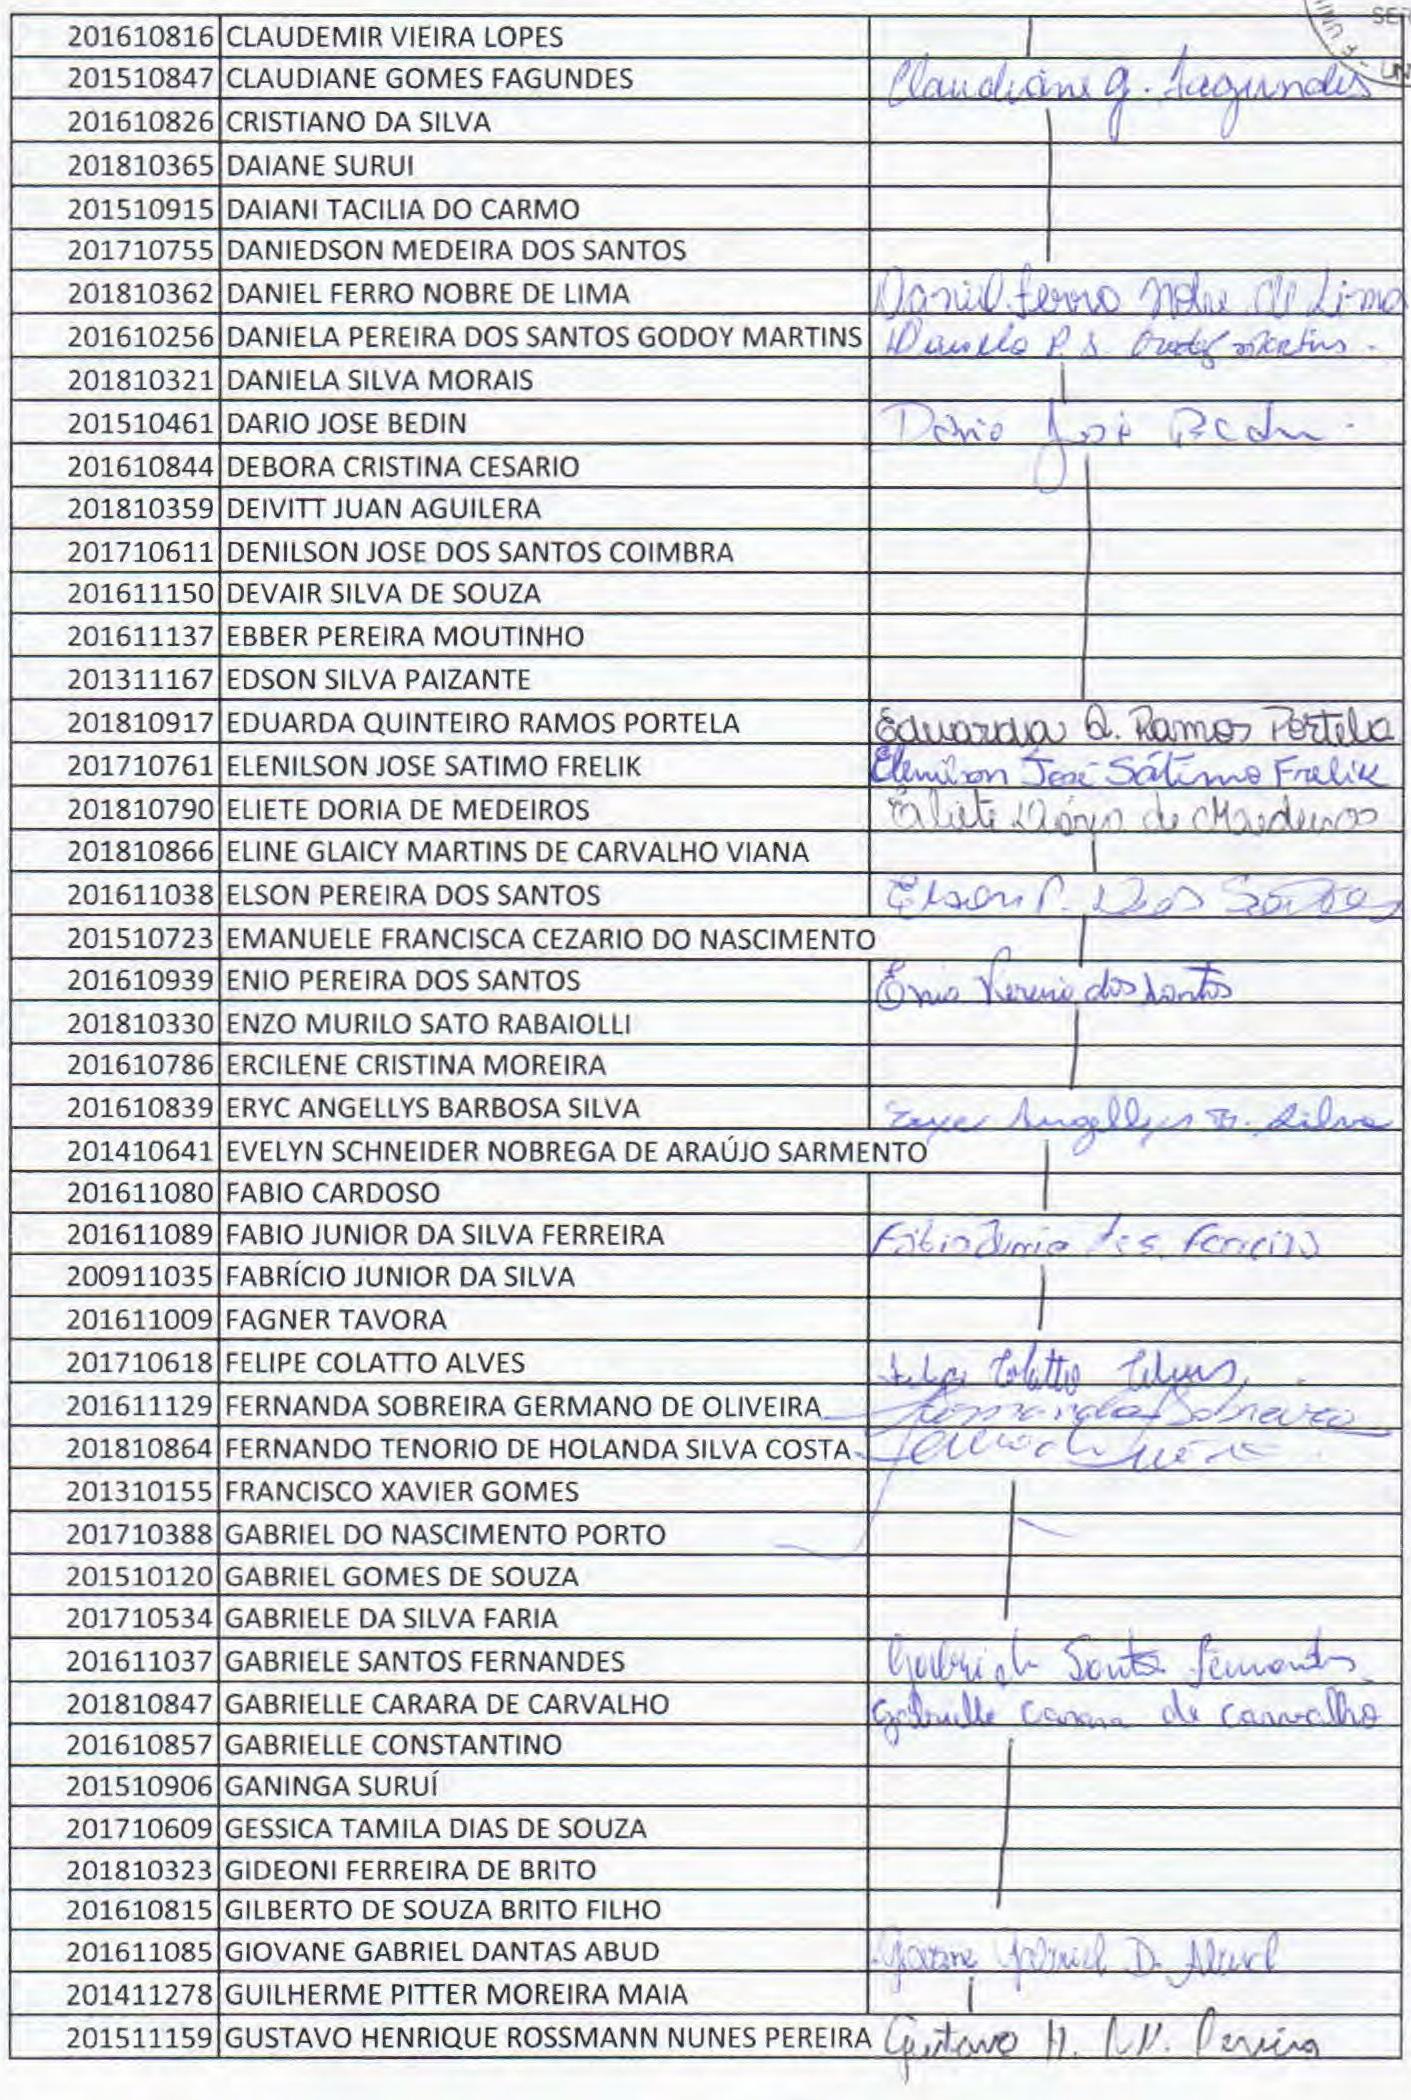 SER
201610816 CLAUDEMIR VIEIRA LOPES
201510847 CLAUDIANE GOMES FAGUNDES Claudiane G. Fagundes
201610826 CRISTIANO DA SILVA
201810365 DAIANE SURUI
201510915 DAIANI TACILIA DO CARMO
201710755 DANIEDSON MEDEIRA DOS SANTOS
201810362 DANIEL FERRO NOBRE DE LIMA Daniel Ferro Nobre de Lima
201610256 DANIELA PEREIRA DOS SANTOS GODOY MARTINS Daniela P. S. Godoy Martins.
201810321 DANIELA SILVA MORAIS
201510461 DARIO JOSE BEDIN Dario José Bedin.
201610844 DEBORA CRISTINA CESARIO
201810359 DEIVITT JUAN AGUILERA
201710611 DENILSON JOSE DOS SANTOS COIMBRA
201611150 DEVAIR SILVA DE SOUZA
201611137 EBBER PEREIRA MOUTINHO
201311167 EDSON SILVA PAIZANTE
201810917 EDUARDA QUINTEIRO RAMOS PORTELA Eduarda Q. Ramos Portela
201710761 ELENILSON JOSE SATIMO FRELIK Elenilson José Sátimo Frelik
201810790 ELIETE DORIA DE MEDEIROS Eliete Dória de Medeiros
201810866 ELINE GLAICY MARTINS DE CARVALHO VIANA
201611038 ELSON PEREIRA DOS SANTOS Elson P. Dos Santos
201510723 EMANUELE FRANCISCA CEZARIO DO NASCIMENTO
201610939 ENIO PEREIRA DOS SANTOS Enio Pereira dos Santos
201810330 ENZO MURILO SATO RABAIOLLI
201610786 ERCILENE CRISTINA MOREIRA
201610839 ERYC ANGELLYS BARBOSA SILVA Eryc Angellys B. Silva
201410641 EVELYN SCHNEIDER NOBREGA DE ARAÚJO SARMENTO
201611080 FABIO CARDOSO
201611089 FABIO JUNIOR DA SILVA FERREIRA Fábio Junior da S. Ferreira
200911035 FABRÍCIO JUNIOR DA SILVA
201611009 FAGNER TAVORA
201710618 FELIPE COLATTO ALVES Felipe Colatto Alves
201611129 FERNANDA SOBREIRA GERMANO DE OLIVEIRA Fernanda Sobreira
201810864 FERNANDO TENORIO DE HOLANDA SILVA COSTA
201310155 FRANCISCO XAVIER GOMES
201710388 GABRIEL DO NASCIMENTO PORTO
201510120 GABRIEL GOMES DE SOUZA
201710534 GABRIELE DA SILVA FARIA
201611037 GABRIELE SANTOS FERNANDES Gabriele Santos Fernandes
201810847 GABRIELLE CARARA DE CARVALHO Gabrielle Carara de Carvalho
201610857 GABRIELLE CONSTANTINO
201510906 GANINGA SURUÍ
201710609 GESSICA TAMILA DIAS DE SOUZA
201810323 GIDEONI FERREIRA DE BRITO
201610815 GILBERTO DE SOUZA BRITO FILHO
201611085 GIOVANE GABRIEL DANTAS ABUD Giovane Gabriel D. Abud
201411278 GUILHERME PITTER MOREIRA MAIA
201511159 GUSTAVO HENRIQUE ROSSMANN NUNES PEREIRA Gustavo H. R.N. Pereira